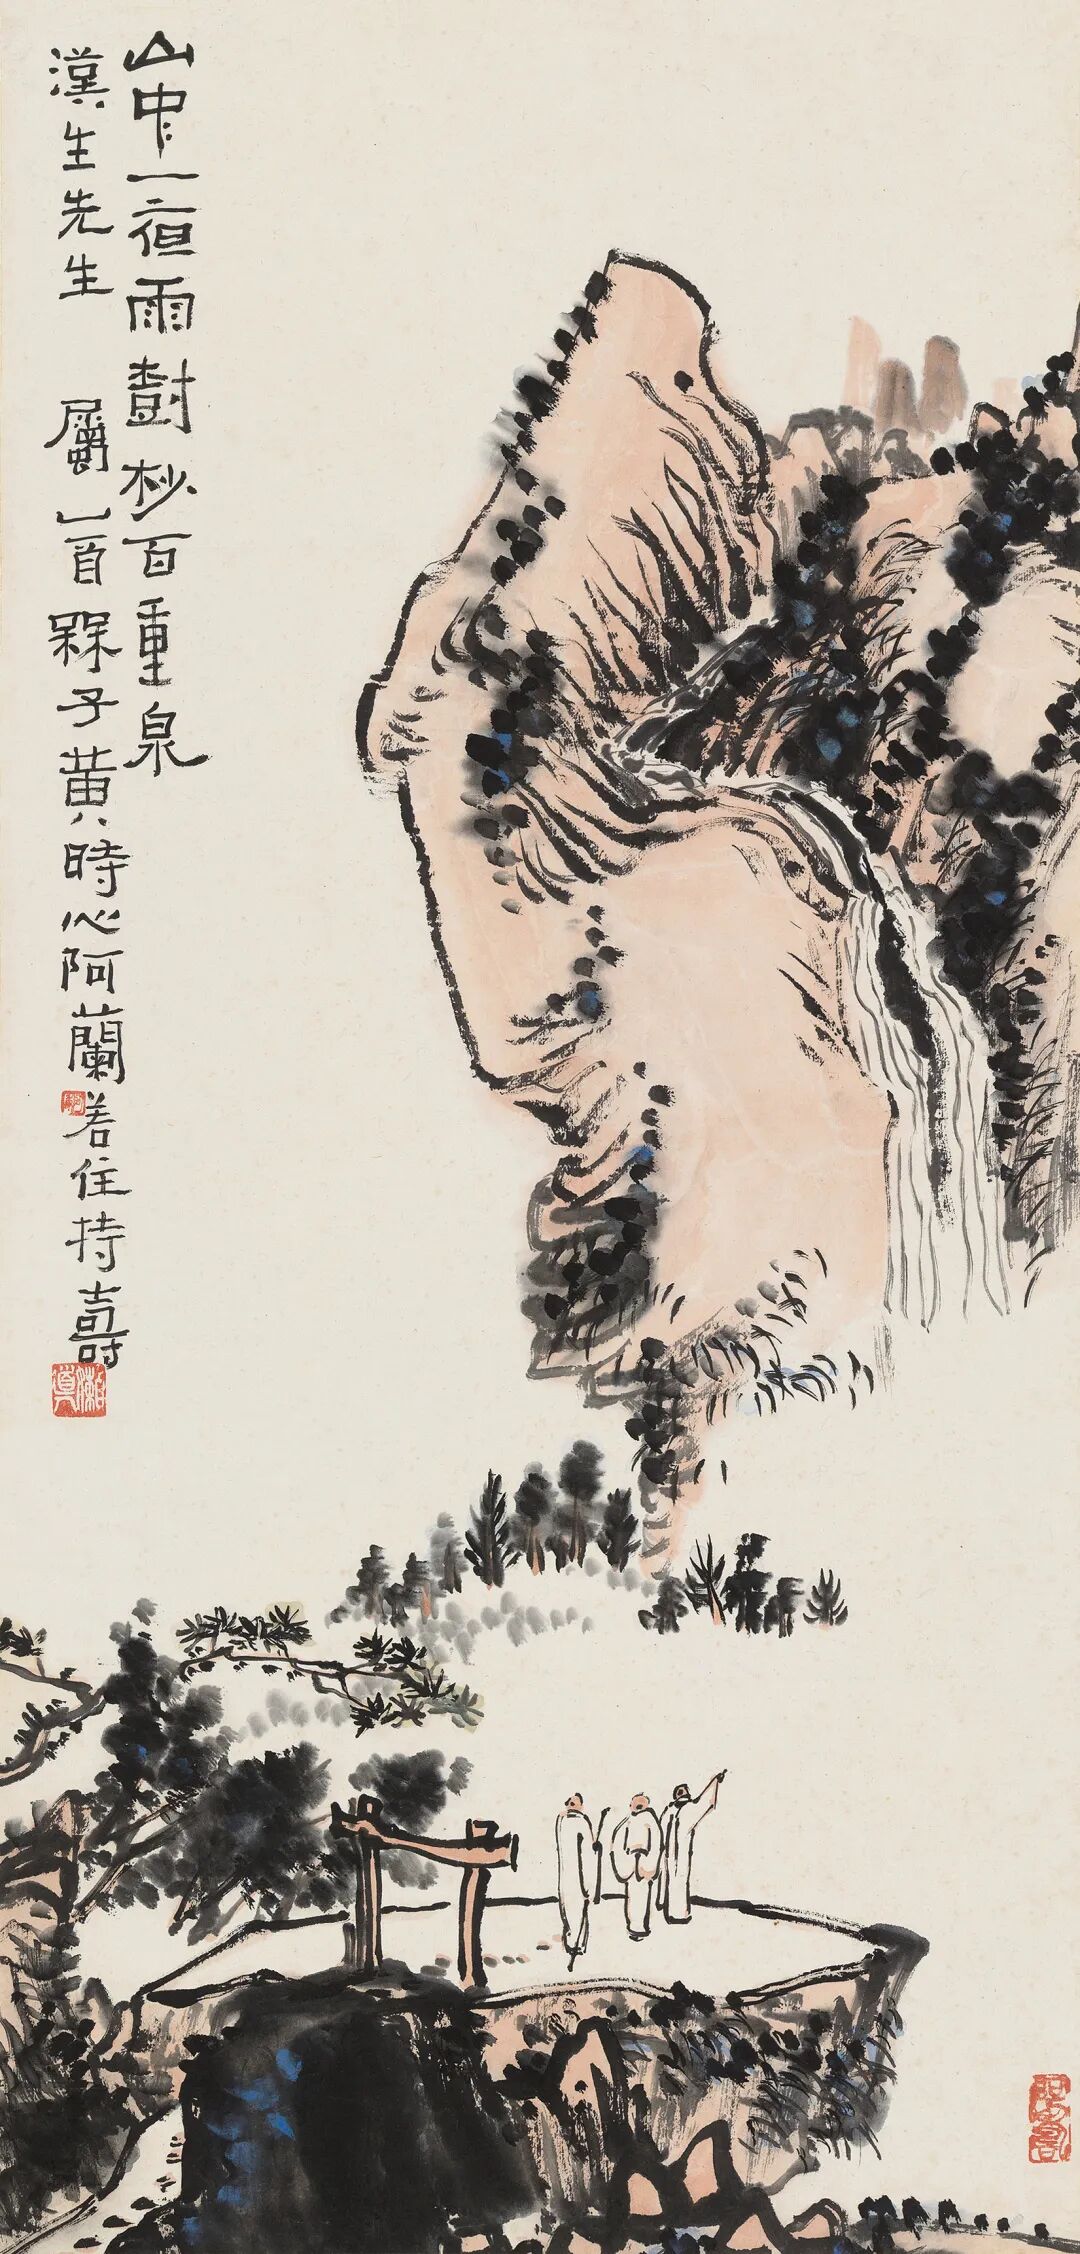 山中一夜雨樹杪百重泉
漢生先生 屬 乙酉槑子黃時心阿蘭若住持壽